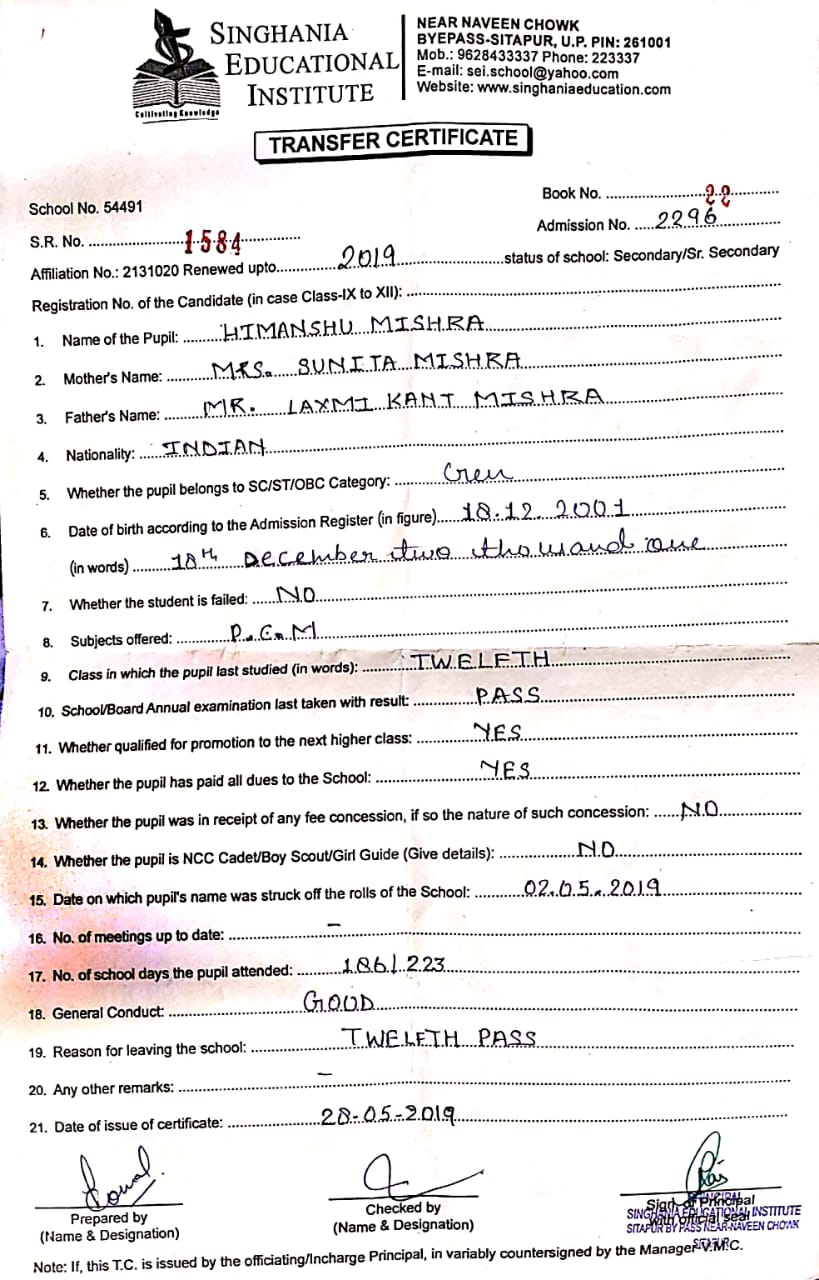 SINGHANIA
EDUCATIONAL
INSTITUTE
Cultivating Knowledge
NEAR NAVEEN CHOWK
BYEPASS-SITAPUR, U.P. PIN: 261001
Mob.: 9628433337 Phone: 223337
E-mail: sei.school@yahoo.com
Website: www.singhaniaeducation.com
TRANSFER CERTIFICATE
School No. 54491
Book No. 22
S.R. No. 1584
Admission No. 2296
Affiliation No.: 2131020 Renewed upto 2019 status of school: Secondary/Sr. Secondary
Registration No. of the Candidate (in case Class-IX to XII):
1. Name of the Pupil: HIMANSHU MISHRA
2. Mother's Name: MRS. SUNITA MISHRA
3. Father's Name: MR. LAXMI KANT MISHRA
4. Nationality: INDIAN
5. Whether the pupil belongs to SC/ST/OBC Category: Gen
6. Date of birth according to the Admission Register (in figure) 18.12.2001
(in words) 18th December two thousand one
7. Whether the student is failed: NO
8. Subjects offered: P.C.M
9. Class in which the pupil last studied (in words): TWELFTH
10. School/Board Annual examination last taken with result: PASS
11. Whether qualified for promotion to the next higher class: YES
12. Whether the pupil has paid all dues to the School: YES
13. Whether the pupil was in receipt of any fee concession, if so the nature of such concession: NO
14. Whether the pupil is NCC Cadet/Boy Scout/Girl Guide (Give details): NO
15. Date on which pupil's name was struck off the rolls of the School: 02.05.2019
16. No. of meetings up to date: –
17. No. of school days the pupil attended: 186/223
18. General Conduct: GOOD
19. Reason for leaving the school: TWELFTH PASS
20. Any other remarks: –
21. Date of issue of certificate: 28-05-2019
Prepared by
(Name & Designation)
Checked by
(Name & Designation)
Sign. of Principal
with official seal
PRINCIPAL
SINGHANIA EDUCATIONAL INSTITUTE
SITAPUR BY PASS NEAR-NAVEEN CHOWK
Note: If, this T.C. is issued by the officiating/Incharge Principal, in variably countersigned by the Manager V.M.C.